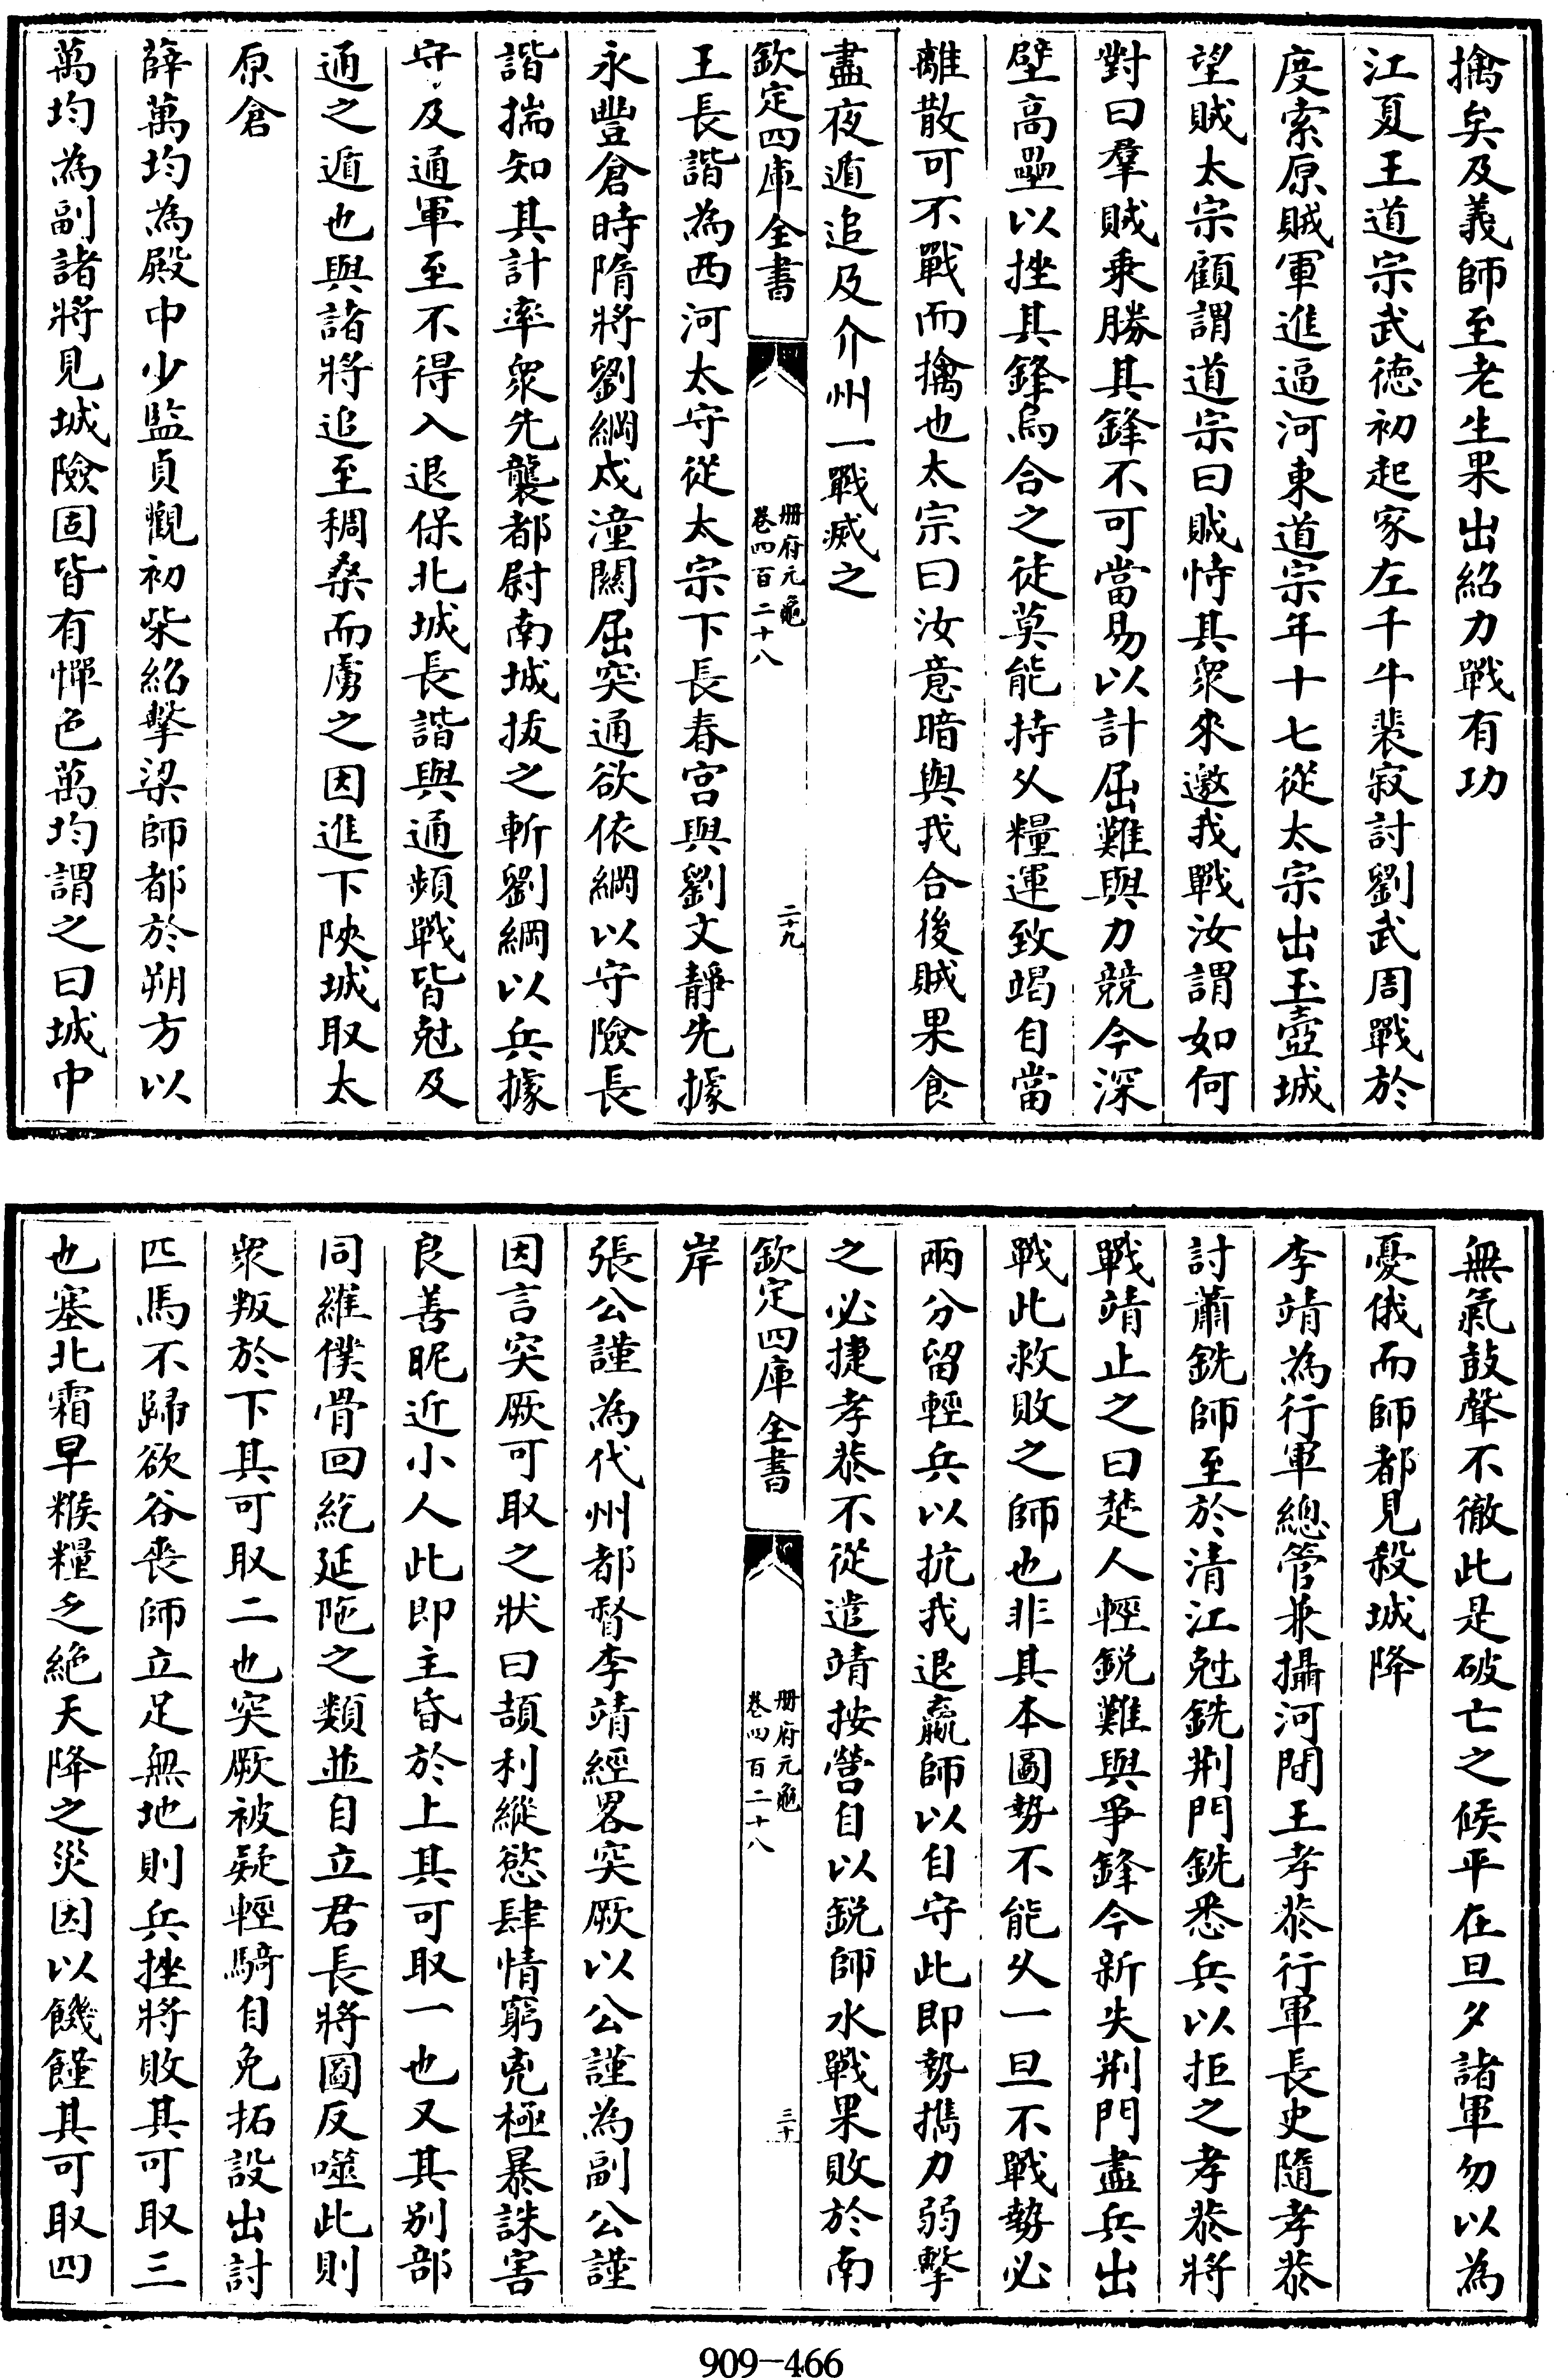 擒矣及義師至老生果出紹力戰有功
江夏王道宗武德初起家左千牛裴寂討劉武周戰於
度索原賊軍進逼河東道宗年十七從太宗出玉壺城
望賊太宗顧謂道宗曰賊恃其衆來邀我戰汝謂如何
對曰羣賊乘勝其鋒不可當易以計屈難與力競今深
壁高壘以挫其鋒烏合之徒莫能持久糧運致竭自當
離散可不戰而擒也太宗曰汝意暗與我合後賊果食
盡夜遁追及介州一戰滅之
欽定四庫全書
册府元龜
卷四百二十八
二十九
王長諧為西河太守從太宗下長春宫與劉文靜先據
永豐倉時隋將劉綱戍潼關屈突通欲依綱以守險長
諧揣知其計率衆先襲都尉南城拔之斬劉綱以兵據
守及通軍至不得入退保北城長諧與通頻戰皆尅及
通之遁也與諸將追至稠桑而虜之因進下陜城取太
原倉
薛萬均為殿中少監貞觀初柴紹擊梁師都於朔方以
萬均為副諸將見城險固皆有憚色萬均謂之曰城中
無氣鼓聲不徹此是破亡之候平在旦夕諸軍勿以為
憂俄而師都見殺城降
李靖為行軍總管兼攝河間王孝恭行軍長史隨孝恭
討蕭銑師至於清江尅銑荆門銑悉兵以拒之孝恭將
戰靖止之曰楚人輕鋭難與爭鋒今新失荆門盡兵出
戰此救敗之師也非其本圖勢不能久一旦不戰勢必
兩分留輕兵以抗我退羸師以自守此即勢攜力弱擊
之必捷孝恭不從遣靖按營自以鋭師水戰果敗於南
欽定四庫全書
册府元龜
卷四百二十八
三十
岸
張公謹為代州都督李靖經畧突厥以公謹為副公謹
因言突厥可取之狀曰頡利縱慾肆情窮兇極暴誅害
良善昵近小人此即主昏於上其可取一也又其别部
同羅僕骨回紇延陁之類並自立君長將圖反噬此則
衆叛於下其可取二也突厥被疑輕騎自免拓設出討
匹馬不歸欲谷喪師立足無地則兵挫將敗其可取三
也塞北霜早糇糧乏絶天降之災因以饑饉其可取四
909-466